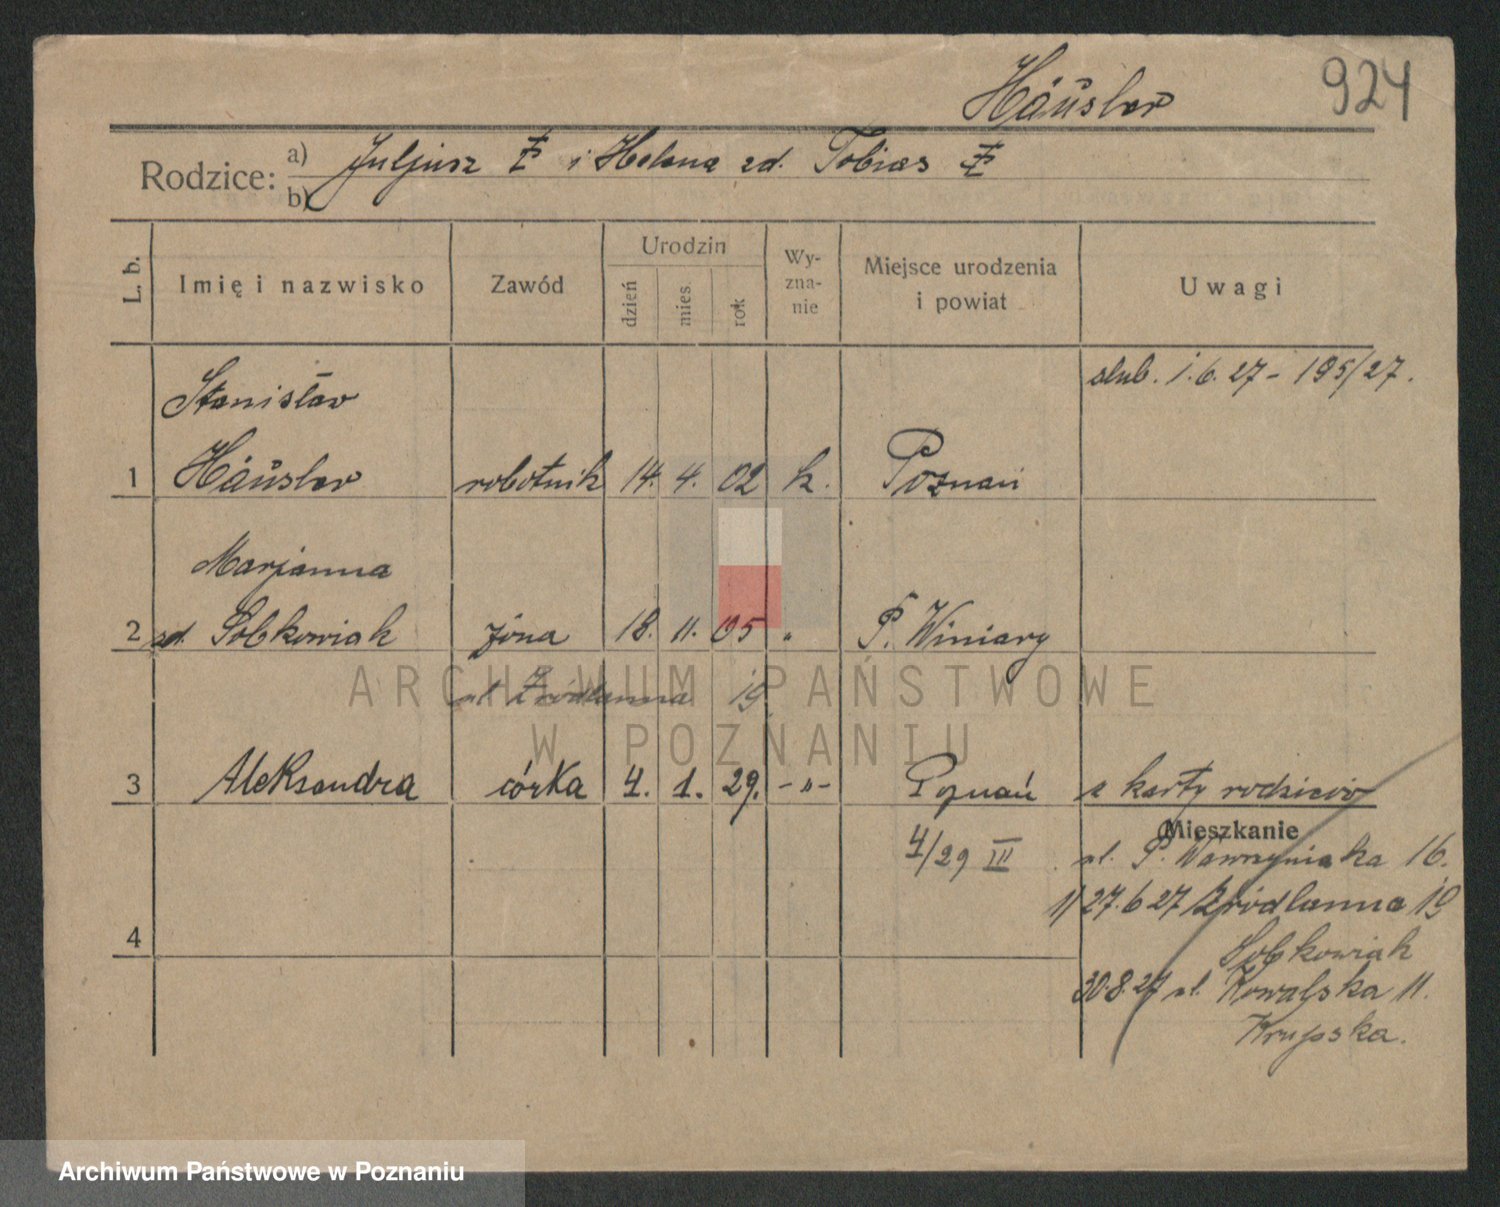 Häusler 924
Rodzice: a) Juljusz i Helena zd. Tobias
b)
L. b. Imię i nazwisko Zawód Urodzin dzień mies. rok Wy-zna-nie Miejsce urodzenia i powiat Uwagi
ślub. 1.6.27 - 195/27.
Stanisław
1 Häusler robotnik 14. 4. 02 k. Poznań
Marjanna
2 zd. Sobkowiak żona 18. 11. 05 " P. Winiary
ul. Źródlanna 19
3 Aleksandra córka 4. 1. 29. -"- Poznań z karty rodziców
Mieszkanie
4/29 III ul. P. Wawrzyniaka 16.
1/27.6 27 Źródlanna 19
4
Sobkowiak
30.8.27 ul. Kowalska 11.
Krupska.
ARCHIWUM PAŃSTWOWE
W POZNANIU
Archiwum Państwowe w Poznaniu